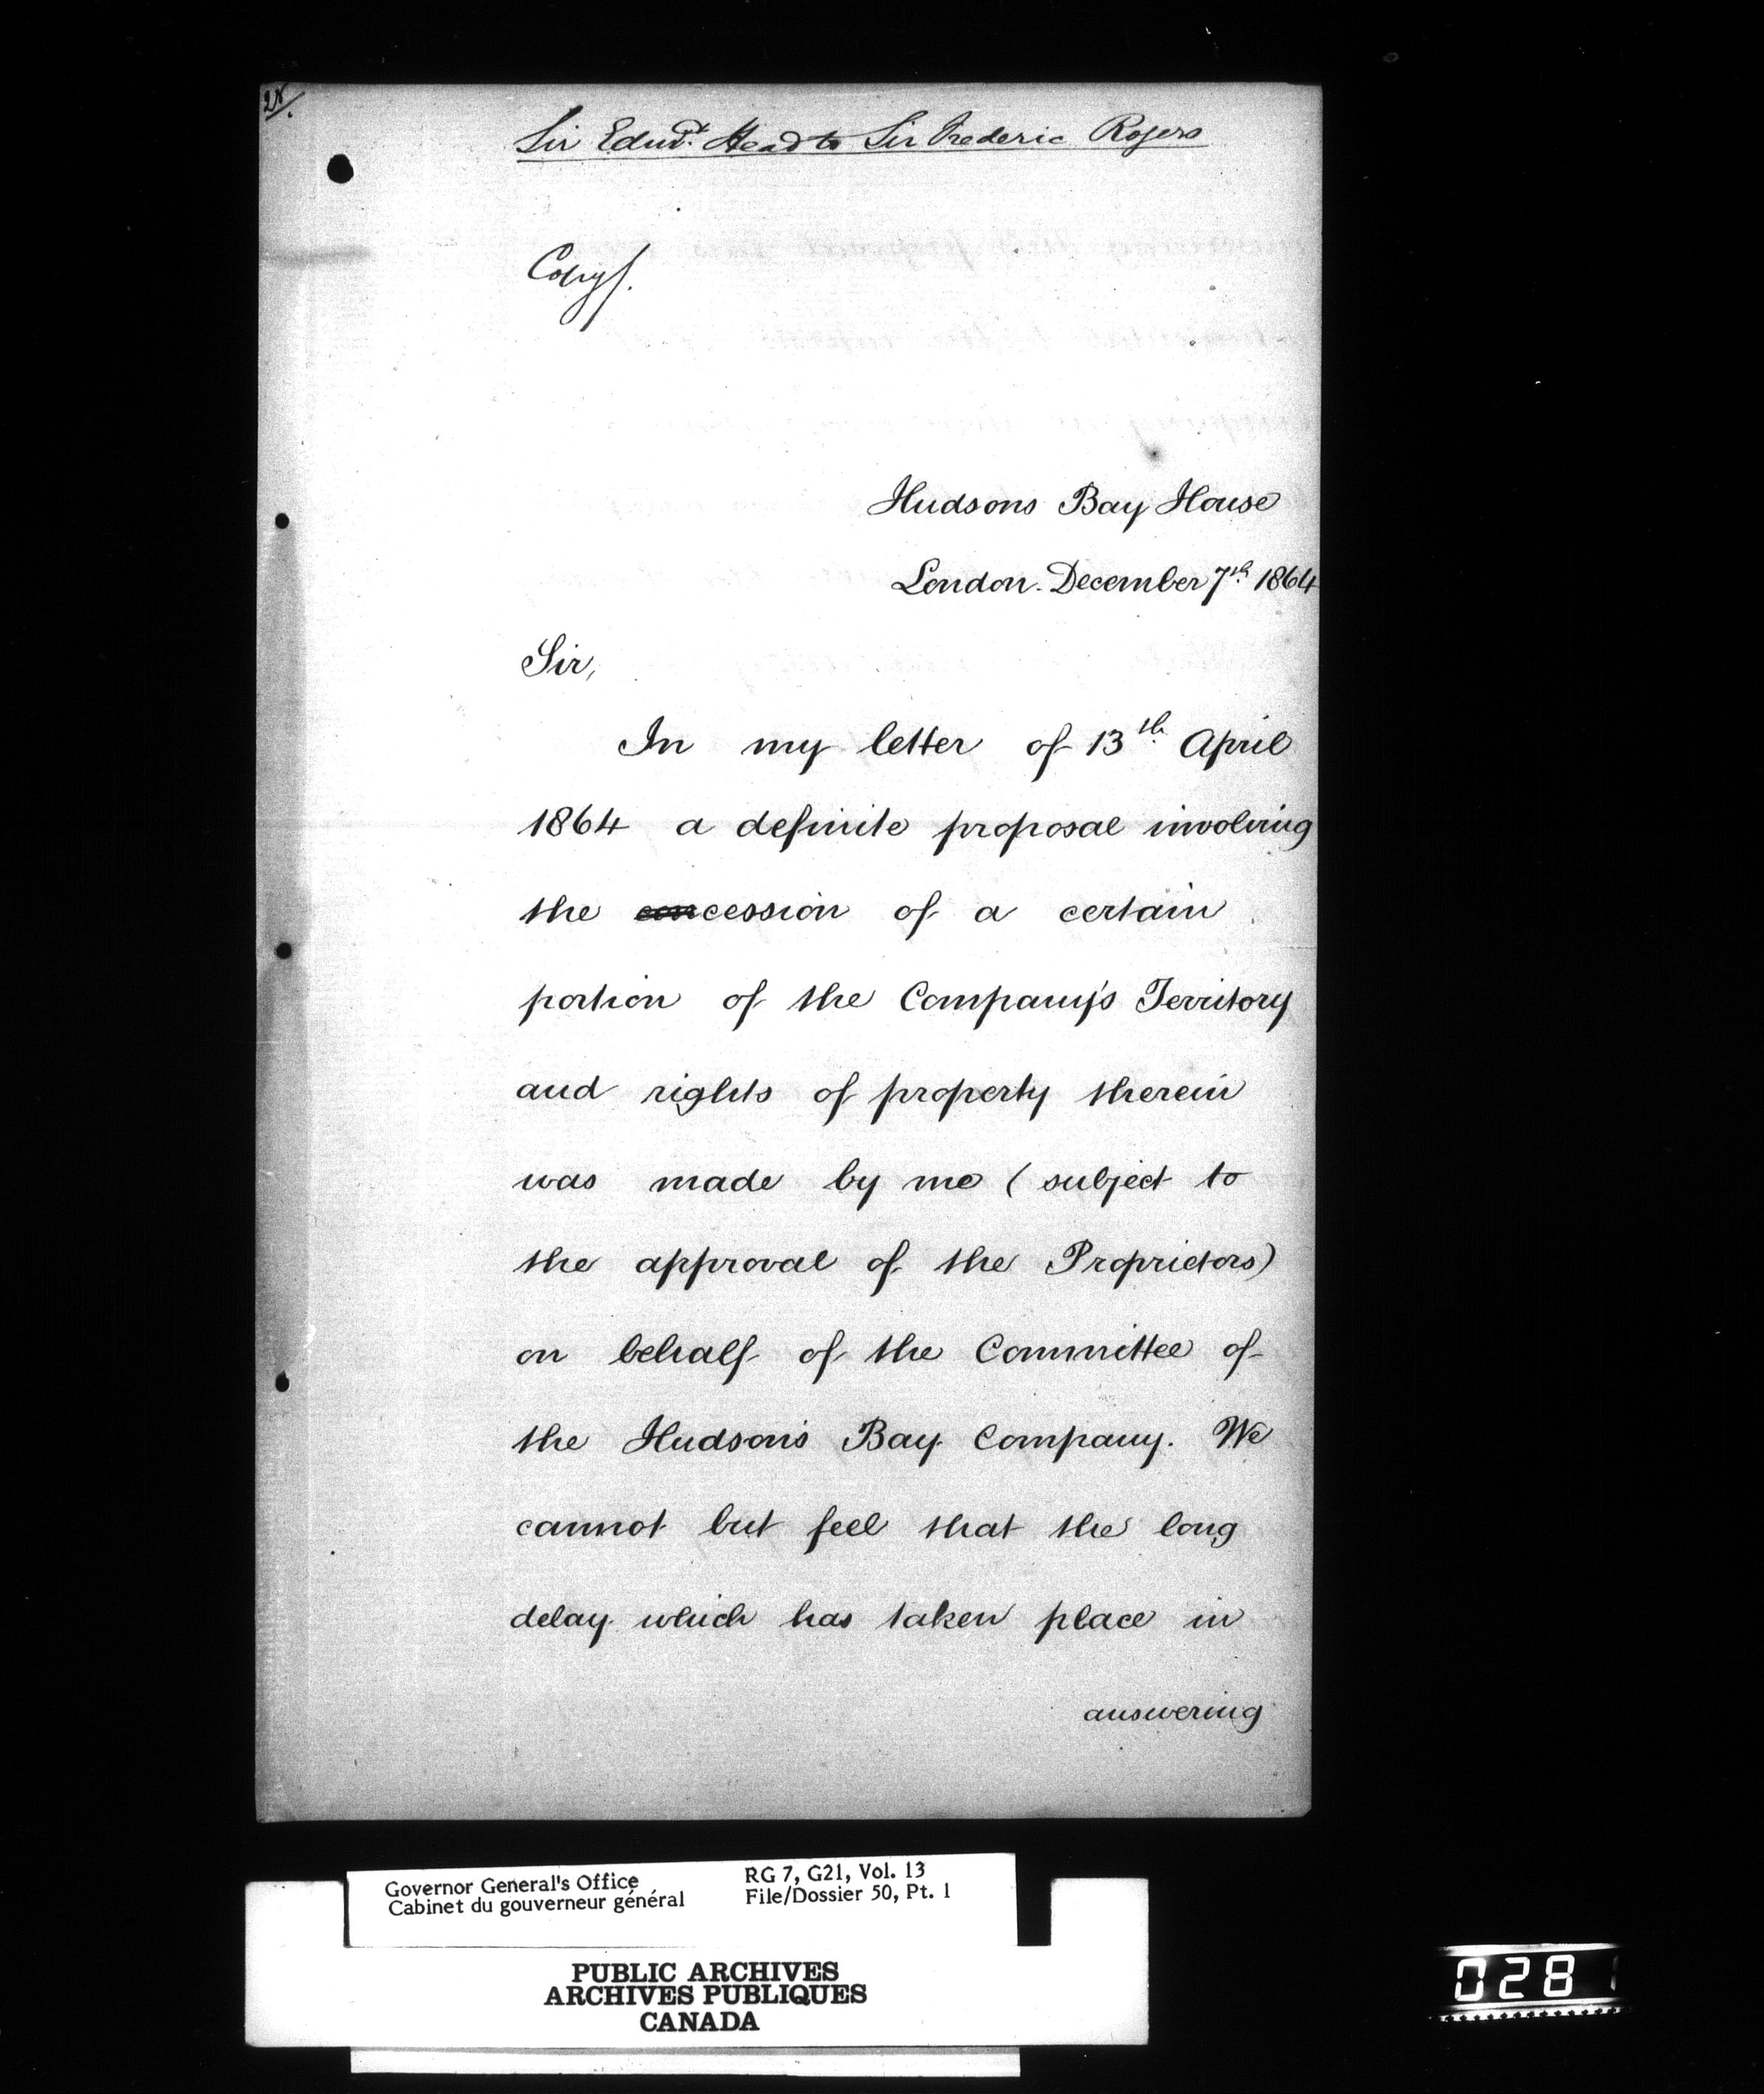 Sir Edmd. Head to Sir Frederic Rogers
Copy/.
Hudsons Bay House
London. December 7th. 1864
Sir,
In my letter of 13th. April
1864 a definite proposal involving
the concession of a certain
portion of the Company's Territory
and rights of property therein
was made by me (subject to
the approval of the Proprietors)
on behalf of the Committee of
the Hudson's Bay Company. We
cannot but feel that the long
delay which has taken place in
answering
Governor General's Office
Cabinet du gouverneur général
RG 7, G21, Vol. 13
File/Dossier 50, Pt. 1
PUBLIC ARCHIVES
ARCHIVES PUBLIQUES
CANADA
028